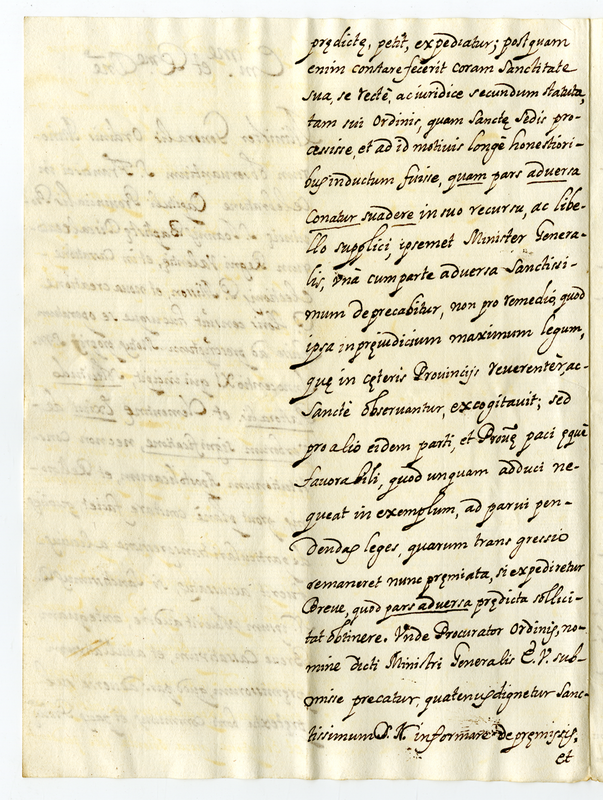 prędictę, petit, expediatur; postquam
enim constare fecerit coram Sanctitate
sua, se rectè, ac iuridice secundum statuta,
tam sui Ordinis, quam Sanctę Sedis pro-
cessisse, et ad id motiuis longè honestiori-
bus inductum fuisse, quam pars aduersa
Conatur suadere in suo recursu, ac libe-
llo supplici, ipsemet Minister Genera-
lis, vnà cum parte aduersa Sanctissi-
mum deprecabitur, non pro remedio, quod
ipsa in pręiudicium maximum legum,
quę in cęteris Provincijs reuerentèr, ac
Sanctè obseruantur, excogitauit; sed
pro alio eidem parti, et Prouę paci ęquè
fauorabili, quod unquam adduci ne-
queat in exemplum, ad parui pen-
dendas leges, quarum transgressio
remaneret nunc pręmiata, si expediretur
Breue, quod pars aduersa prędicta sollici-
tat obtinere. Vnde Procurator Ordinis, no-
mine dicti Ministri Generalis E. V. sub-
misse precatur, quatenus dignetur Sanc-
tissimum D. N. informare de pręmissis,
et